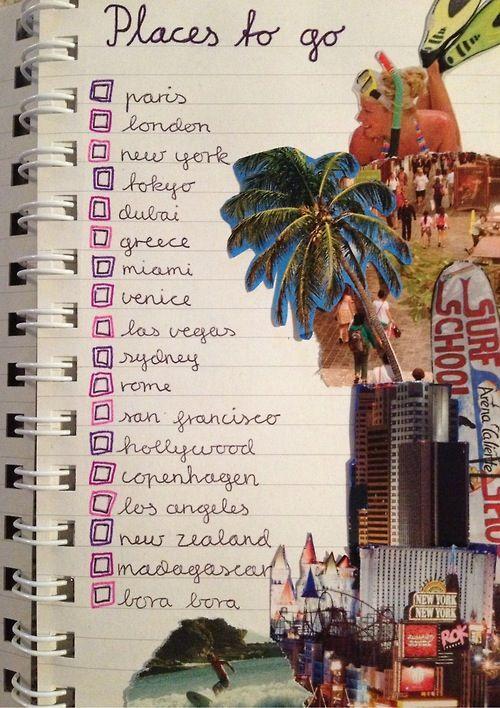 Places to go
paris
london
new york
tokyo
dubai
greece
miami
venice
las vegas
sydney
rome
san francisco
hollywood
copenhagen
los angeles
new zealand
madagascar
bora bora
SURF
SCHOOL
NEW YORK
NEW YORK
ROK